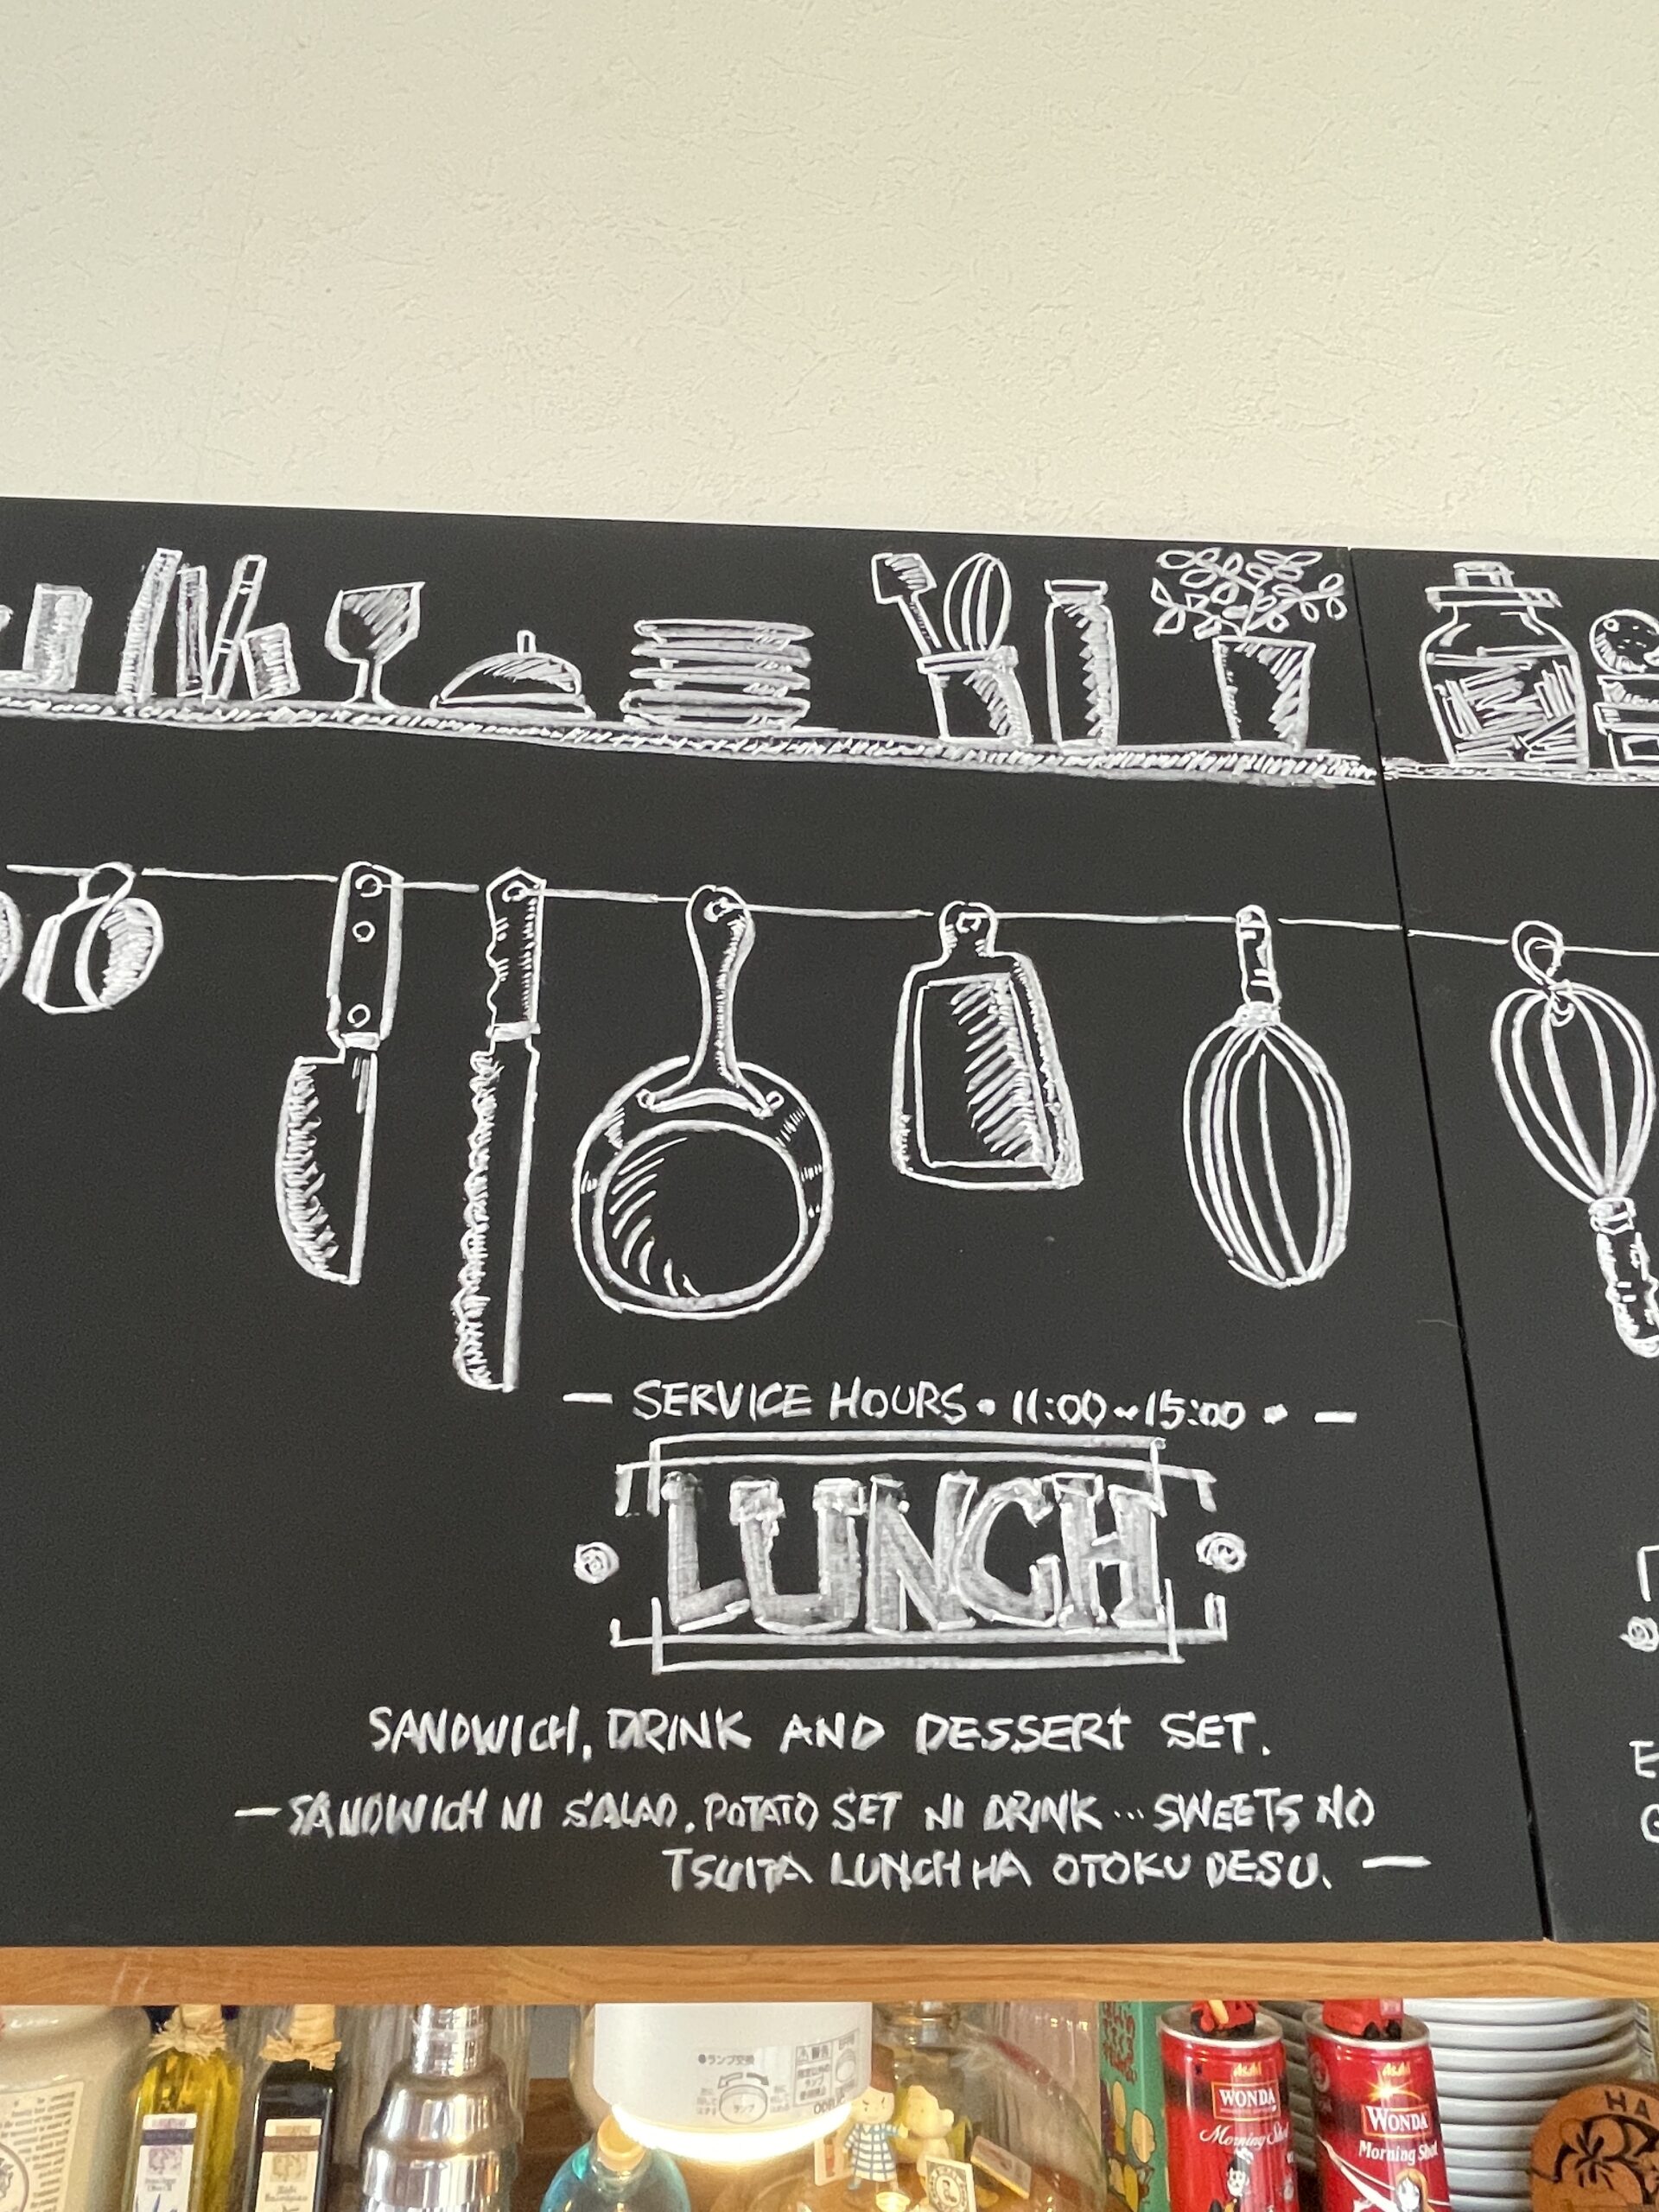 — SERVICE HOURS • 11:00~15:00 • —
LUNCH
SANDWICH, DRINK AND DESSERT SET.
— SANDWICH NI SALAD, POTATO SET NI DRINK ... SWEETS NO
TSUITA LUNCH HA OTOKU DESU. —
●ランプ交換
ランプ
Asahi
WONDA
Morning Shot
Asahi
WONDA
Morning Shot
HA